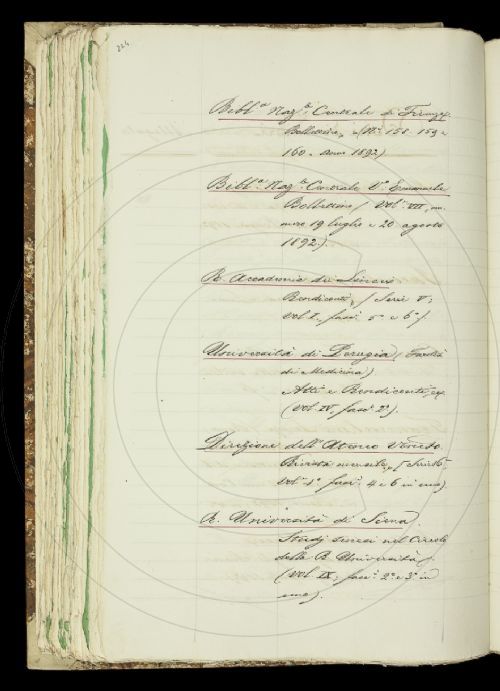 224.
Bibl.ª Naz.ª Centrale di Firenze.
Bollettino, (Ni 158. 159 e
160. Anno 1892)
Bibl.ª Naz.ª Centrale V.º Emanuele
Bollettino / Vol. VII, nu-
mero 19 luglio e 20 agosto
1892).
R. Accademia dei Lincei
Rendiconti, / Serie V,
Vol. I, fasc. 5º e 6º)
Università di Perugia (Facoltà
di Medicina)
Atti e Rendiconti
(Vol. IV, fasc. 2º).
Direzione dell'Ateneo Veneto.
Rivista mensile,
Vol. 1º fasc. 4 e 6 in uno)
R. Università di Siena.
Studj senesi nel Circolo
della R. Università,
(Vol. IX, fasc. 2º e 3º in
uno).